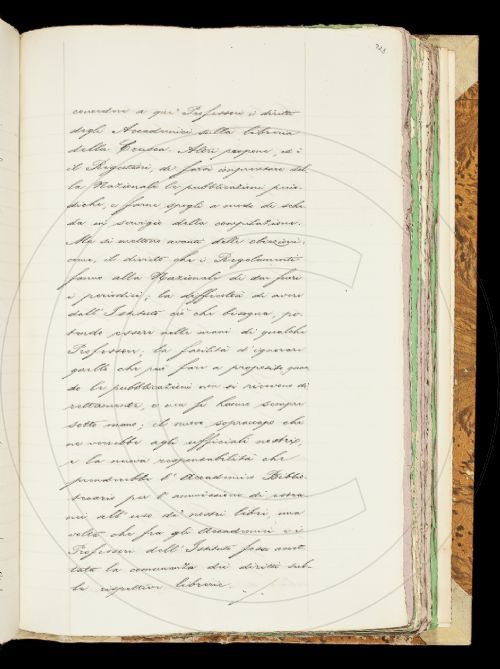 723
concedere a que' Professori i diritti
degli Accademici sulla libreria
della Crusca. Altri propone, ed è
il Rigutini, di farsi imprestare dal
la Nazionale le pubblicazioni perio
diche, e farne spogli a modo di sche
da in servigio della compilazione.
Ma si mettono avanti delle obiezioni:
come, il divieto che i Regolamenti
fanno alla Nazionale di dar fuori
i periodici; la difficoltà di avere
dall'Istituto ciò che bisogna, po-
tendo essere nelle mani di qualche
Professore; la facilità d'ignorare
quello che può fare a proposito, quan
do le pubblicazioni non si ricevono di
rettamente, e non si hanno sempre
sotto mano; il nuovo sopraccapo che
ne verrebbe agli ufficiali nostri,
e la nuova responsabilità che
prenderebbe l'Accademico Biblio
tecario per l'ammissione di estra
nei all'uso de' nostri libri, una
volta che fra gli Accademici e i
Professori dell'Istituto fosse accet
tata la comunanza dei diritti sul
le rispettive librerie.